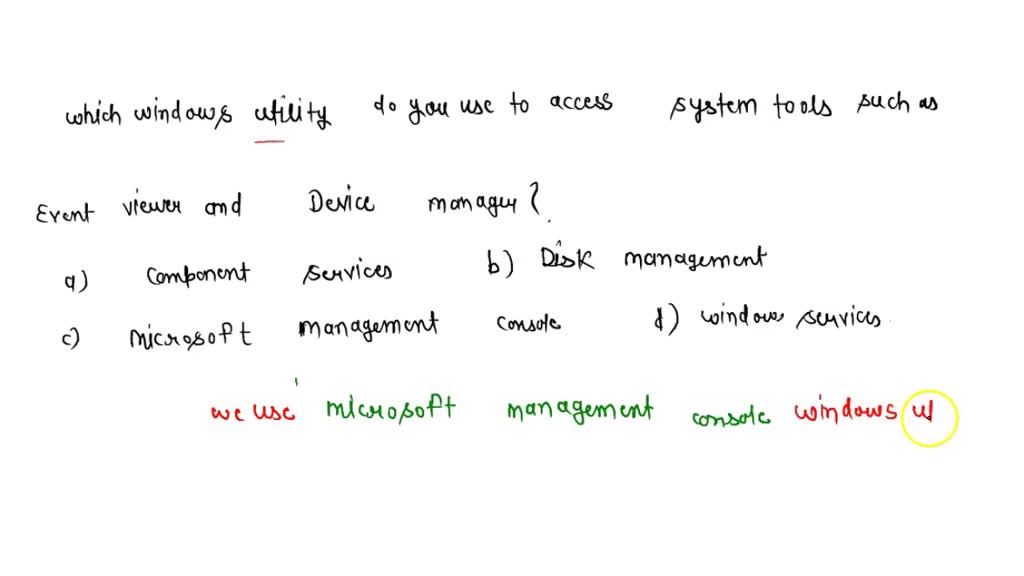 which windows utility do you use to access system tools such as
Event viewer and Device manager?
a) component services b) Disk management
c) microsoft management console d) windows services.
we use microsoft management console windows ut